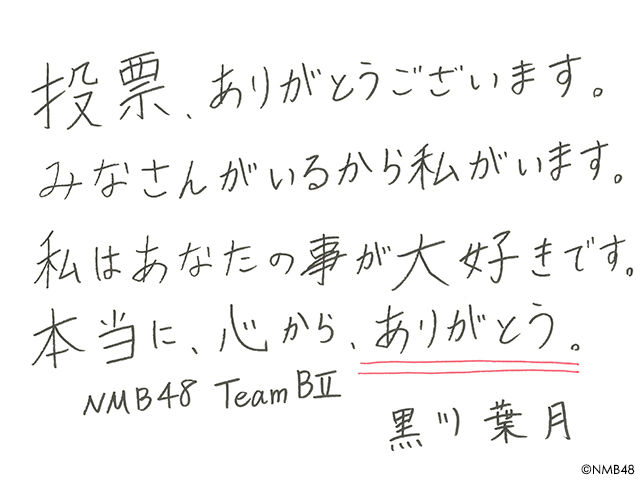 投票、ありがとうございます。
みなさんがいるから私がいます。
私はあなたの事が大好きです。
本当に、心から、ありがとう。
NMB48 Team BⅡ
黒川葉月
©NMB48